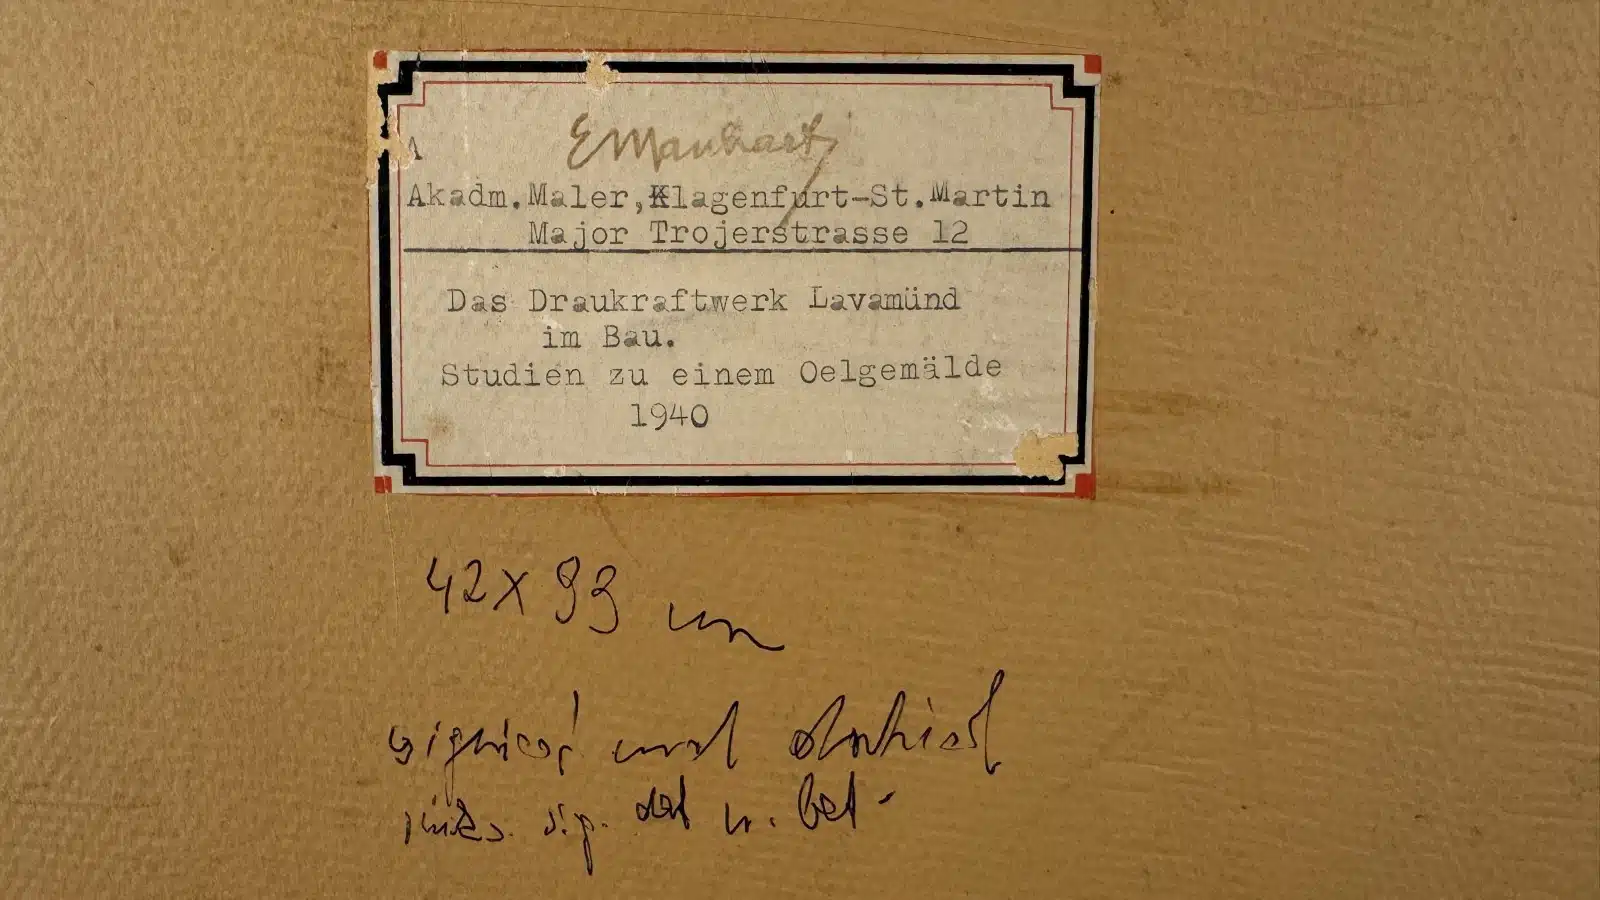 E Manhart
Akadm.Maler,Klagenfurt-St.Martin
Major Trojerstrasse 12
Das Draukraftwerk Lavamünd
im Bau.
Studien zu einem Oelgemälde
1940
42 x 99 cm
signiert und datiert
links sig. dat u. bet.